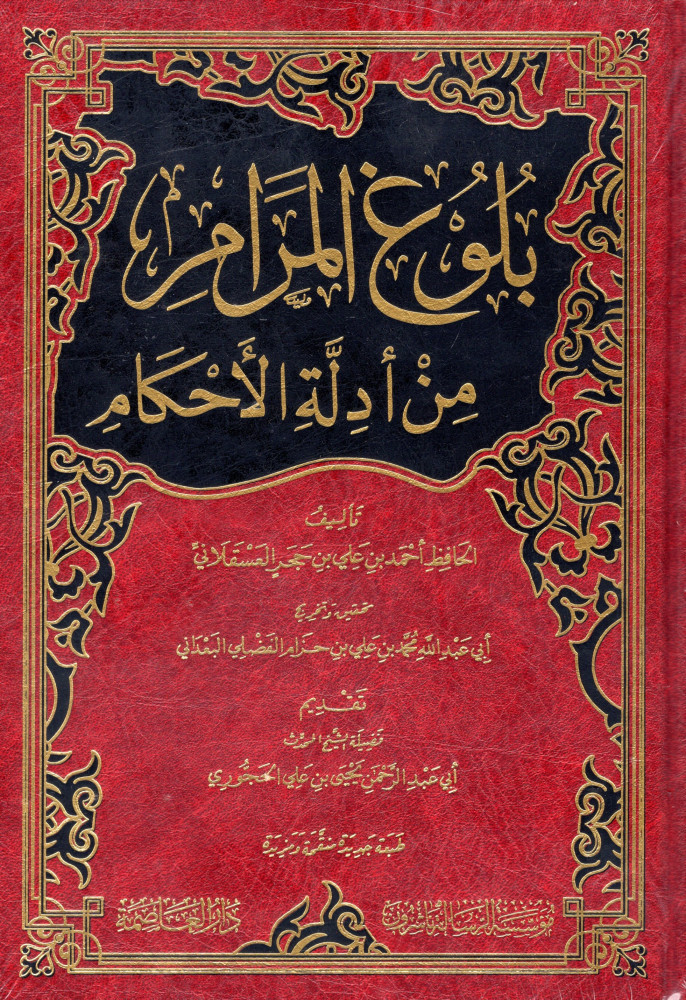 بُلُوْغُ المَرَامِ
مِنْ أَدِلَّةِ الأَحْكَامِ
تَأليفُ
الحَافِظِ أَحْمَد بن عَلي بن حَجَرٍ العَسْقَلَانيِّ
تحقيق وتخريج
أبي عَبْدِ اللَّهِ مُحَمَّد بن عَلي بن حزَام الفَضْلي البَعْدَاني
تَقْدِيم
فضيلة الشيخ المحدث
أبي عَبْدِ الرَّحْمَن يَحْيَى بن عَلي الحَجُوري
طبعَة جَديدَة منقَّحَة وَمَزيدَة
مؤسسة الرسالة ناشرون
دار العاصمة